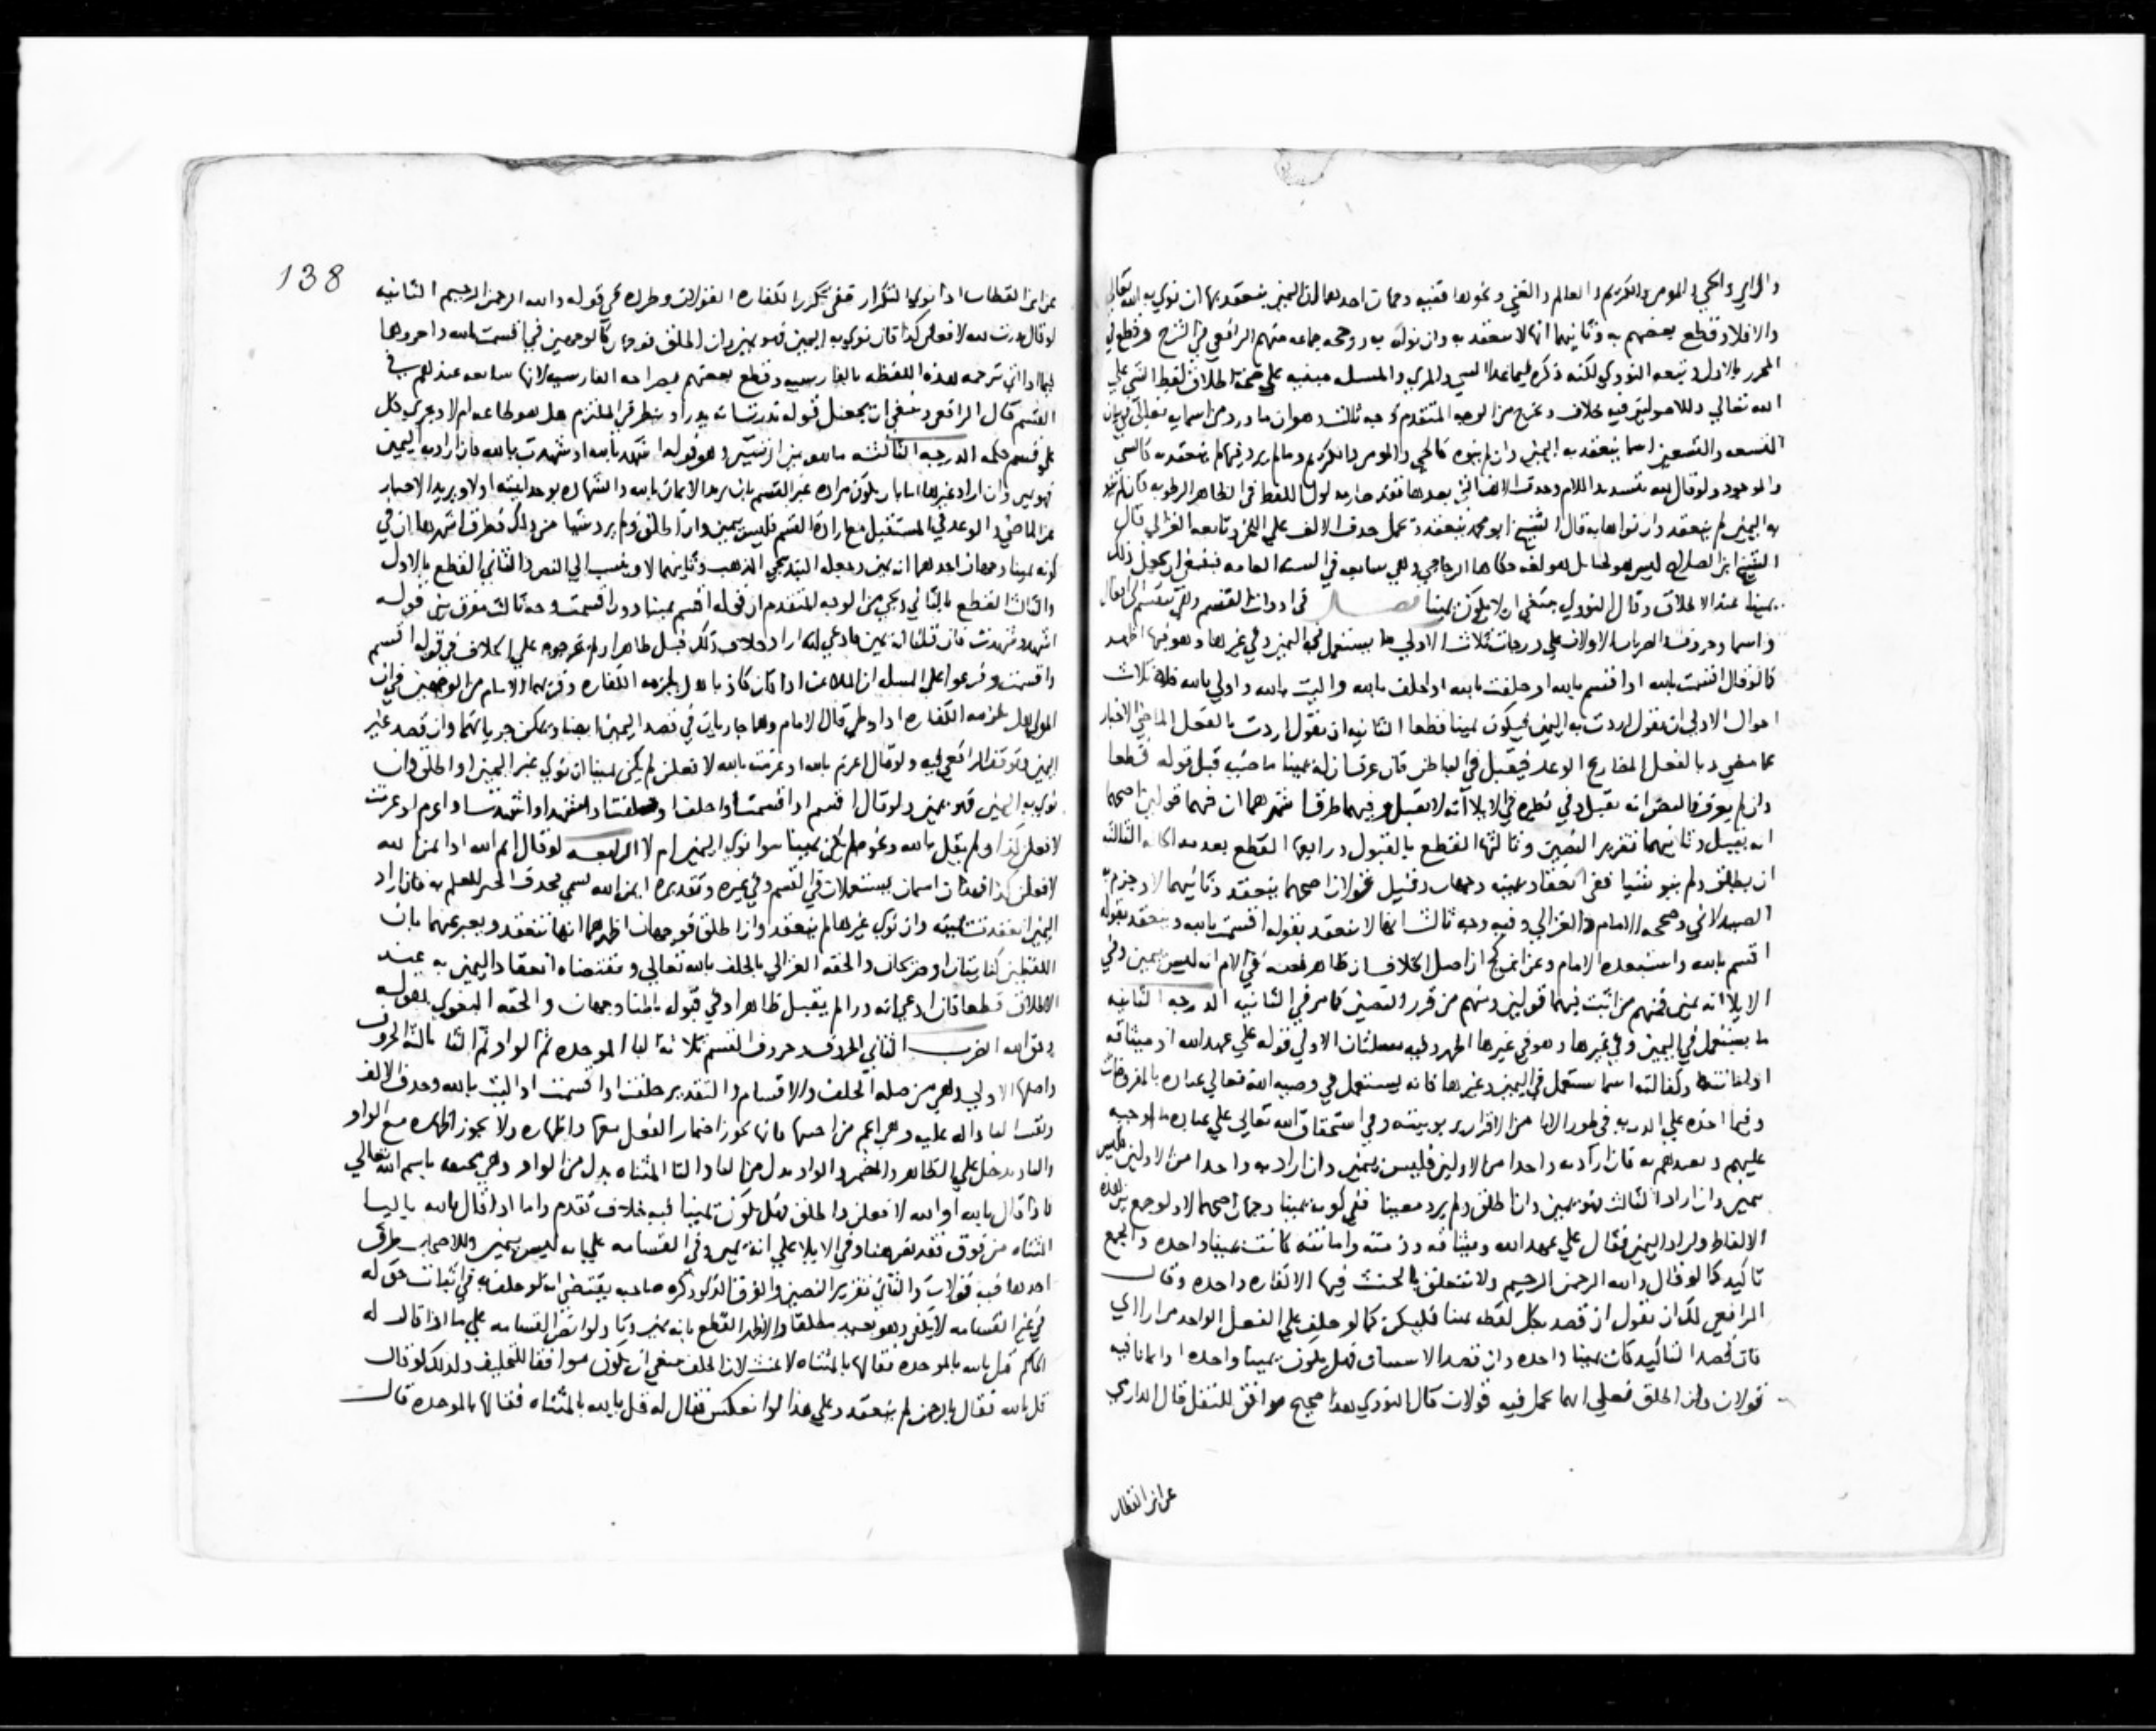 والرائي والحي والمومن والكريم والعالم والغني ونحوها ففيه وجهان احدهما ان اليمين ينعقد بها ان نوي به الله تعالي
والا فلا وقطع بعضهم به وثانيهما انها لا تنعقد به وان نواه به ورجحه جماعه منهم الرافعي في الشرح وقطع في
المحرر بالاول وتبعه النووي لكنه ذكره فيما عدا السي والمري والمسله مبنيه علي صحة اطلاق لفظ الشي علي
الله تعالي وللاصوليين فيه خلاف ويخرج من الوجه المتقدم وجه ثالث وهو ان ما ورد من اسمايه تعالي في بيان
التسعه والتسعين اسما ينعقد به اليمين وان لم ينوه كالحي والمومن والكريم وما لم يرد فيها لم ينعقد به كالشي
والموجود ولو قال بله بتشديد اللام وحذف الالف التي بعدها فهذه صارت لولا اللفظ في الظاهر الرطوبه فان لم ينو
به اليمين لم ينعقد وان نواها به قال الشيخ ابو محمد ينعقد ويحمل حذف الالف علي اللحن وتابعه الغزالي قال
الشيخ ابن الصلاح ليس هو لحنا بل هو لغه حكاها الزجاجي وهي سايعه في السنه العامه فينبغي ان يجعل ذلك
يمينا عند الاطلاق وقال النووي ينبغي ان لا يكون يمينا فصل في ادوات القسم وهي تنقسم الي افعال
واسما وحروف الضرب الاول الافعال علي درجات ثلاث الاولي ما يستعمل في اليمين وفي غيرها وهو فيها اظهر
كما لو قال اقسمت بالله او اقسم بالله او حلفت بالله او احلف بالله واليت بالله واولي بالله فله ثلاث
احوال الاولي ان يقول اردت به اليمين فيكون يمينا قطعا الثانيه ان يقول اردت بالفعل الماضي الاخبار
عما مضي وبالفعل المضارع الوعد فيقبل في الباطن فان عرف ان له يمينا ماضيه قبل قوله قطعا
وان لم يعرف فالنص انه يقبل وفي نظيره في الايلا انه لا يقبل وفيهما طرق اشهرهما ان فيهما قولين اصحهما
انه يقبل وثانيهما تقرير النصين وثالثها القطع بالقبول ورابعها القطع بعدمه الحاله الثالثه
ان يطلق ولم ينو شيا ففي انعقاد يمينه وجهان وقيل قولان اصحهما ينعقد وثانيهما لا وجزم به
الصيدلاني وصححه الامام والغزالي وفيه وجه ثالث انها لا تنعقد بقوله اقسمت بالله وينعقد بقوله
اقسم بالله واستبعده الامام وعن ابن كج ان اصل الخلاف ان ظاهر نصه في الام انه ليس بيمين وفي
الايلا انه يمين فمنهم من اثبت فيهما قولين ومنهم من قرر النصين كما مر في الثانيه الدرجه الثانيه
ما يستعمل في اليمين وفي غيرها وهو في غيرها اظهر وفيه مسلتان الاولي قوله علي عهد الله او ميثاقه
او امانته وكفالته اسما يستعمل في اليمين وغيرها فانه يستعمل في وصيه الله تعالي عباده بالمفروضات
وفيما اخذه علي الذريه في ظهور الابا من الاقرار بربوبيته وفي استحقاق الله تعالي علي عباده ما اوجبه
عليهم وتعبدهم به فان اراد به واحدا من الاولين فليس بيمين وان اراد به واحدا من الاولين فليس
بيمين وان اراد الثالث فهو يمين وان اطلق ولم يرد معينا ففي كونه يمينا وجهان اصحهما لا ولو جمع بين هذه
الالفاظ واراد اليمين فقال علي عهد الله وميثاقه وذمته وامانته كانت يمينا واحده والجمع
تاكيد كما لو قال والله الرحمن الرحيم ولا تتعلق بالحنث فيها الا كفاره واحده وقال
الرافعي لك ان تقول ان قصد بكل لفظه يمينا فليكن كما لو حلف علي الفعل الواحد مرارا اي
فان قصد التاكيد كان يمينا واحده وان قصد الاستيناف فهل يكون يمينا واحده او ايمانا فيه
قولان وان اطلق فعلي ايهما يحمل فيه قولان قال النووي هذا صحيح موافق للنقل قال الدارمي
عن ابن القطان
138
عن ابن القطان اذا نوي التكرار ففي تكرر الكفاره القولان وطرده في قوله والله الرحمن الرحيم الثانيه
لو قال نذرت لله لافعلن كذا فان نوي به اليمين فهو يمين وان اطلق فوجهان كالوجهين في اقسمت بالله واجروهما
فيما اذا اتي ترجمه لهذه اللفظه بالفارسيه وقطع بعضهم بصراحه الفارسيه لانها سايعه عندهم في
القسم قال الرافعي وينبغي ان يجعل قوله نذرت لله نذرا وينظر في الملتزم هل هو طاعه ام لا ويجري كل
علي قسم حكمه الدرجه الثالثه ما هو بين الرتبتين وهو قوله اشهد بالله او شهدت بالله فان اراد به اليمين
فهو يمين وان اراد غيرها بان يكون مراده غير القسم بان يريد الايمان بالله والشهاده بوحدانيته او لا ويريد الاخبار
عن الماضي والوعد في المستقبل مع ارادة القسم فليس بيمين وان اطلق ولم يرد شيا من ذلك فطرق اشهرها ان في
كونه يمينا وجهان احدهما انه يمين وجعله البندنيجي المذهب وثانيهما لا وينسب الي النص والثاني القطع بالاول
والثالث القطع بالثاني ويجي من الوجه المتقدم ان قوله اقسم يمينا دون اقسمت وجه ثالث مفرق بين قوله
اشهد وشهدت فان قلنا انه يمين فادعي انه اراد خلاف ذلك قبل ظاهرا ولم يخرجوه علي الخلاف في قوله اقسم
واقسمت وفرعوا علي المسله ان الملاعن اذا كان كاذبا هل يلزمه الكفاره وقربهما الامام من الوجهين في ان
المولي هل يلزمه الكفاره اذا وطي قال الامام وهما جاريان في قصد اليمين ايضا ويمكن جريانهما وان قصد غير
اليمين وتوقف الرافعي فيه ولو قال اعزم بالله او عزمت بالله لافعلن لم يكن يمينا ان نوي غير اليمين او اطلق وان
نوي به اليمين فهو يمين ولو قال اقسم او اقسمت او احلف او حلفت او اشهد او شهدت او اعزم او عزمت
لافعلن كذا ولم يقل بالله ونحوه لم يكن يمينا سوا نوي اليمين ام لا الرابعه لو قال ايم الله او ايمن الله
لافعلن كذا فهذان اسمان يستعملان في القسم وفي غيره وتقديره ايمن الله قسمي بحذف الخبر للعلم به فان اراد
اليمين انعقدت يمينه وان نوي غيرها لم ينعقد وان اطلق فوجهان اظهرهما انها لا تنعقد ويعبر عنهما بان
اللفظين كنايتان او صريحان والحقه الغزالي بالحلف بالله تعالي ومقتضاه انعقاد اليمين به عند
الاطلاق قطعا فان ادعي انه وري لم يقبل ظاهرا وفي قبوله باطنا وجهان والحقه البغوي بقوله
وحق الله الضرب الثاني الحروف وحروف القسم ثلاثه البا الموحده ثم الواو ثم التا ثالثة الحروف
واصلها الاولي وهي من صله الحلف والاقسام والتقدير حلفت او اقسمت او اليت بالله وحذف الالف
ولقيت البا داله عليه وهي اعم من اختيها فانها يجوز اضمار الفعل معها واظهاره ولا يجوز اظهاره مع الواو
والبا تدخل علي الظاهر والمضمر والواو بدل من البا والتا المثناه بدل من الواو وهي مختصه باسم الله تعالي
فاذا قال بالله او والله لافعلن واطلق فهل يكون يمينا فيه خلاف تقدم واما اذا قال تالله بالتا
المثناه من فوق فقد نص هنا وفي الايلا علي انه يمين وفي القسامه علي انه ليس بيمين وللاصحاب طرق
احدها فيه قولان والثاني تقرير النصين والفرق المذكور ذكره صاحبه يقتضي انه لو حلف به في اثبات حق له
في غير القسامه لا يكفي وهو بعيد مطلقا والاظهر القطع بانه يمين واولوا نص القسامه علي ما اذا قال له
الحاكم قل بالله بالموحده فقالها بالمثناه لا يحنث لان الحلف ينبغي ان يكون موافقا للتحليف ولذلك لو قال
قل بالله فقال بالرحمن لم ينعقد وعلي هذا لو انعكس فقال له قل تالله بالمثناه فقالها بالموحده قال